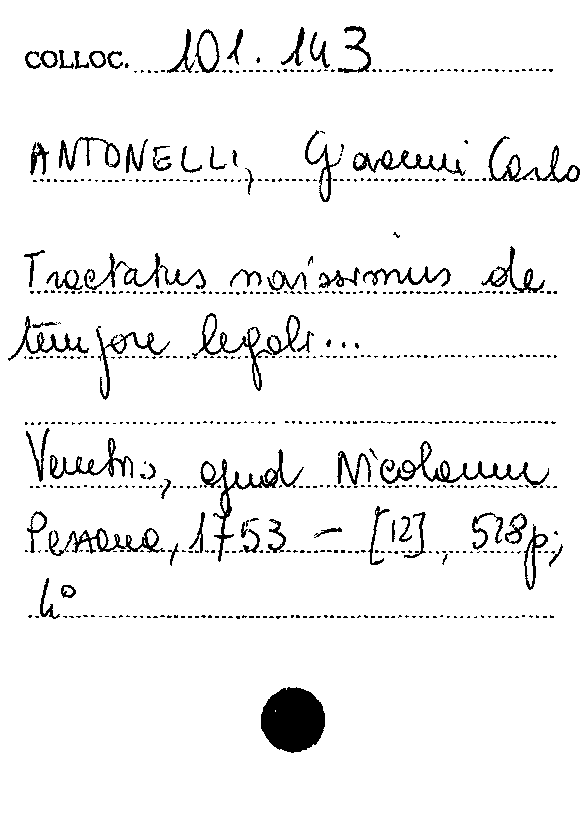 COLLOC. 101.143
ANTONELLI, Giovanni Carlo
Tractatus novissimus de
tempore legali...
Venetiis, apud Nicolaum
Pezzana, 1753 - [12], 528p;
4°